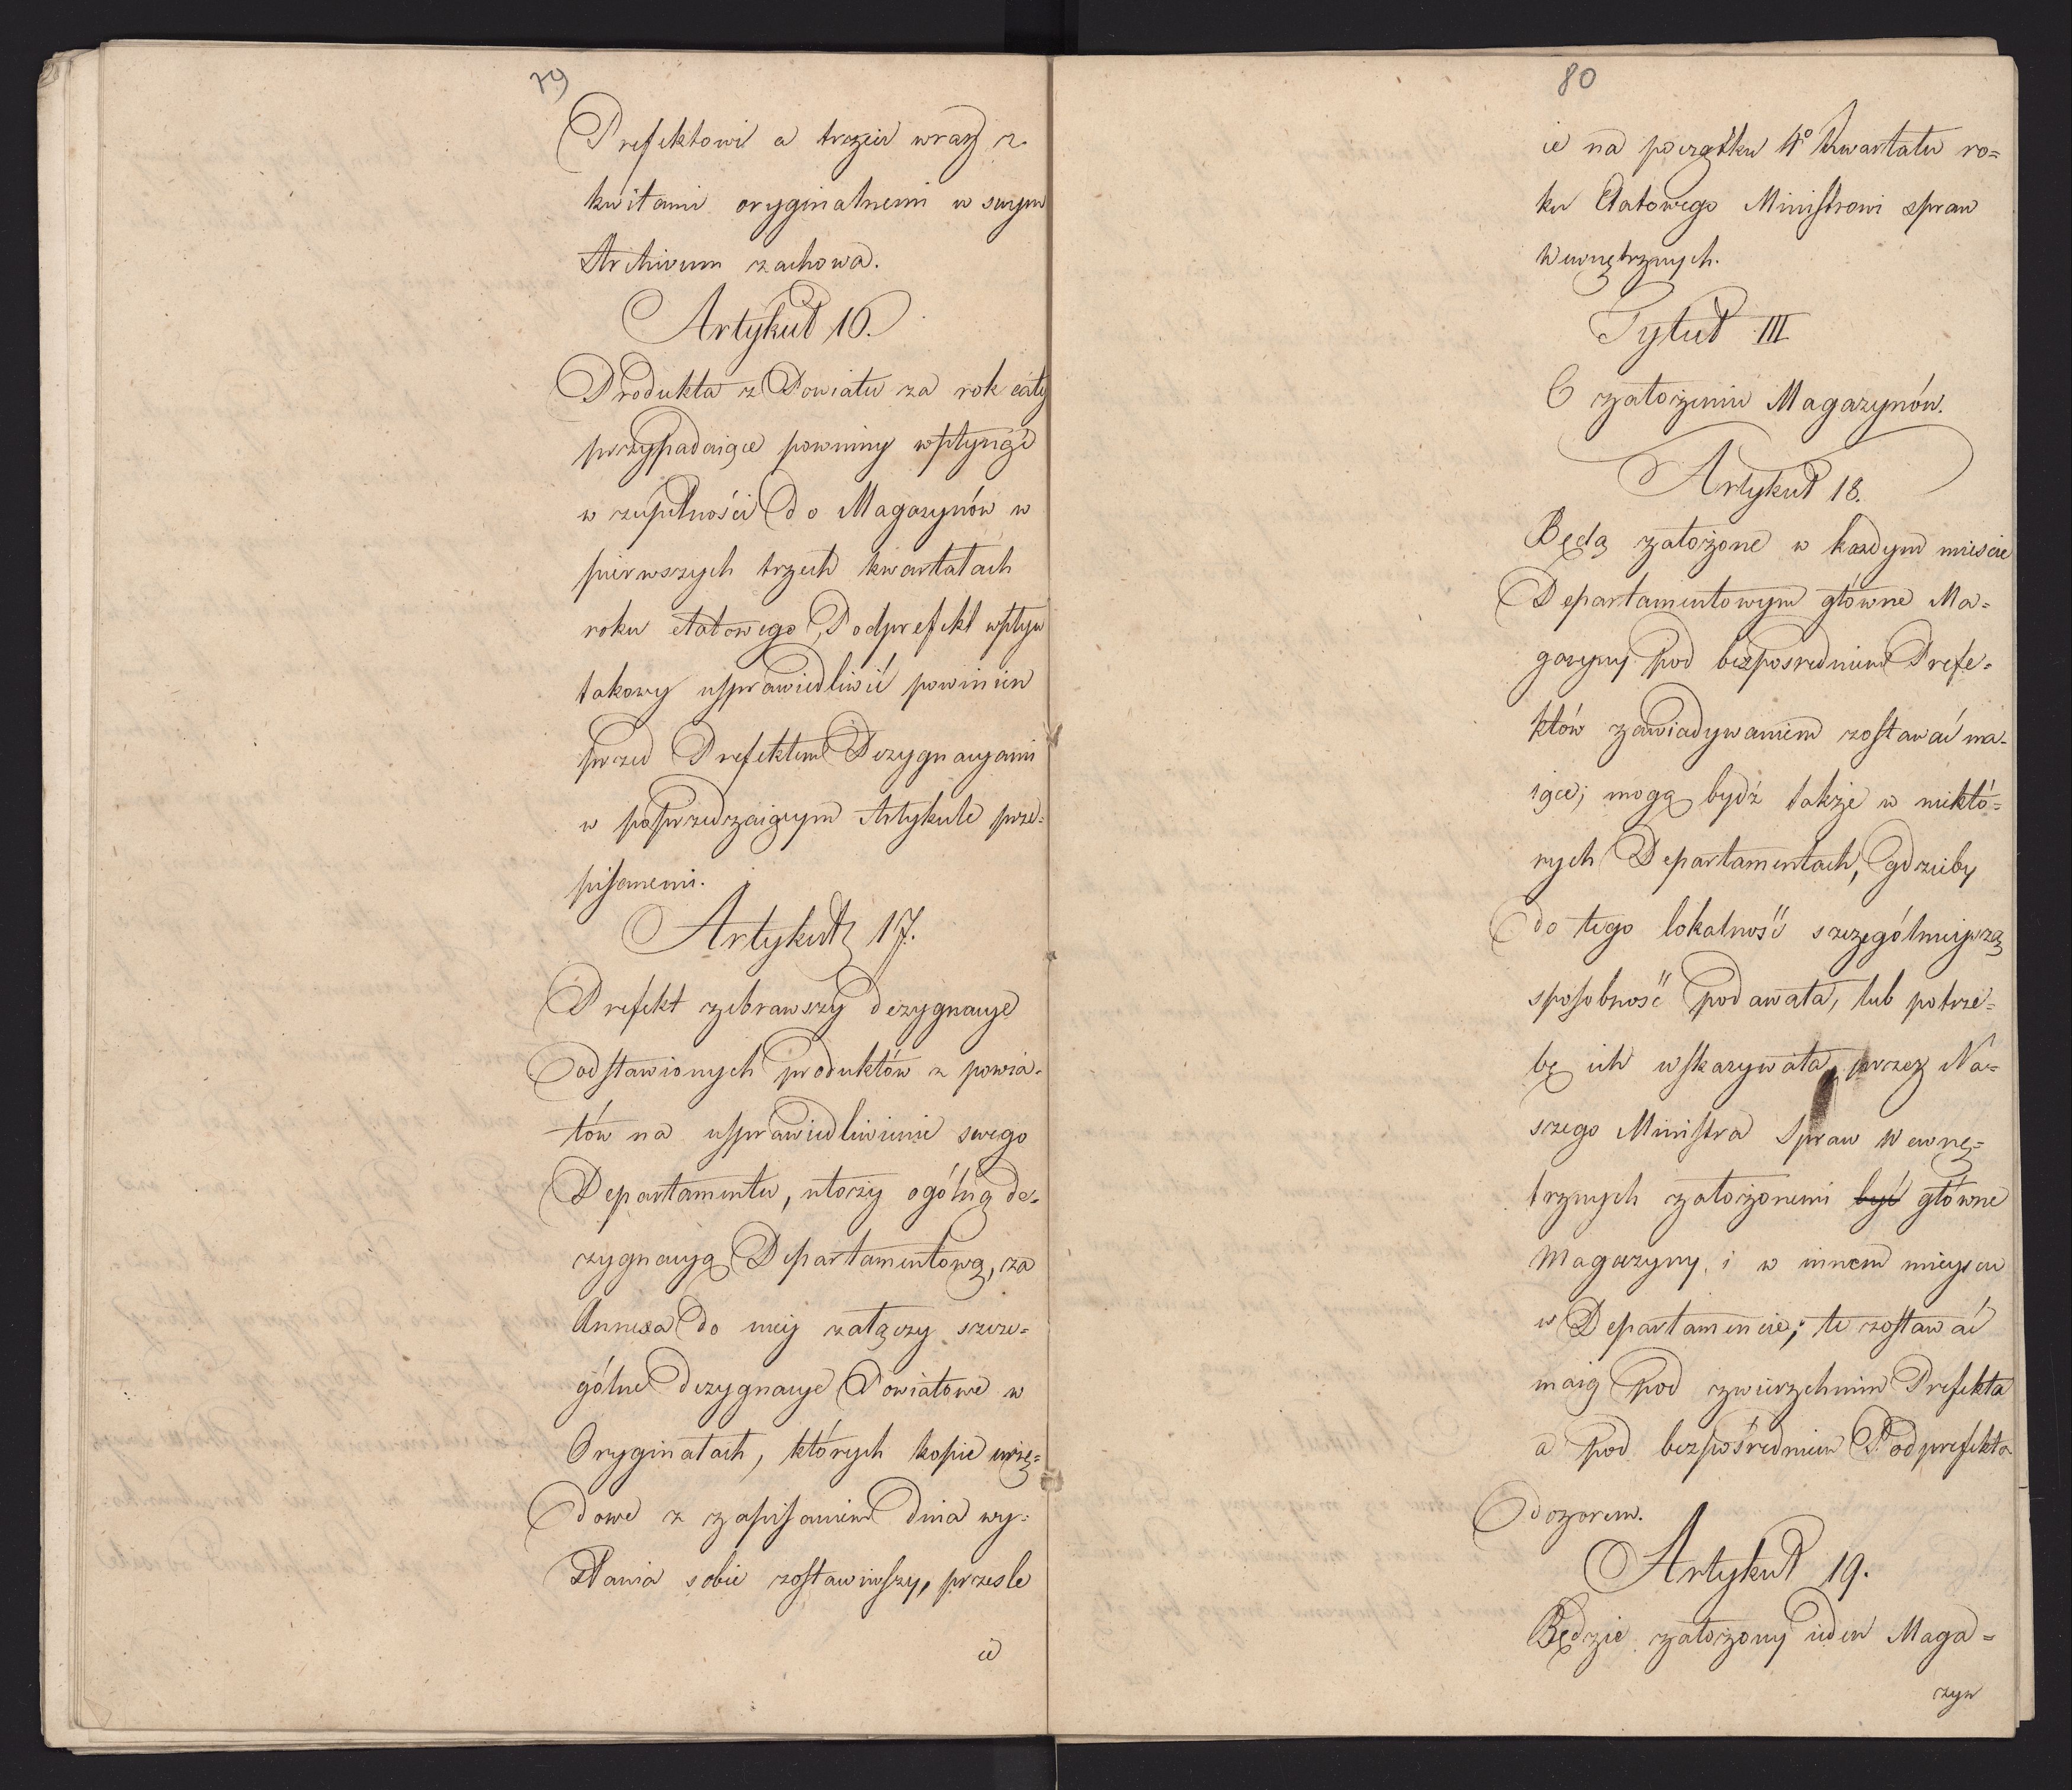 79
Prefektowi a trzeci wraz z
kwitami oryginalnemi w swym
Archivum zachowa.
Artykuł 16.
Produkta z Powiatu za rok cały
przypadaiące powinny wpłynąć
w zupełności do Magazynów w
pierwszych trzech kwartałach
roku etatowego, Podprefekt wpływ
takowy usprawiedliwić powinien
przed Prefektem Dezygnacyami
w poprzedzaiącym Artykule prze-
pisanemi.
Artykuł 17.
Prefekt zebrawszy dezygnacye
odstawionych produktów z powia-
tów na usprawiedliwienie swego
Departamentu, utoży ogólną de-
zygnacyą Departamentową, za
Annexa do niey załączy szcze-
gólne dezygnacye Powiatowe w
Oryginałach, których kopie urzę-
dowe z zapisaniem dnia wy-
słania sobie zostawiwszy, prześle
ie
80
ie na początku 4º kwartału ro=
ku Etatowego Ministrowi spraw
Wewnętrznych.
Tytuł III
O założeniu Magazynów.
Artykuł 18.
Będą założone w każdym mieście
Departamentowym główne Ma=
gazyny pod bezpośredniem Prefe=
któw zawiadywaniem zostawać ma-
iące; mogą bydź także w niektó=
rych Departamentach, gdzieby
do tego lokalność szczególnieyszą
sposobność podawała, lub potrze=
bę ich wskazywała, przez Na=
szego Ministra Spraw Wewnę=
trznych założonemi być główne
Magazyny i w innem mieyscu
w Departamencie; te zostawać
maią pod zwierzchnim Prefekta
a pod bezpośredniem Podprefekta
dozorem.
Artykuł 19.
Będzie założony ieden Maga=
zyn